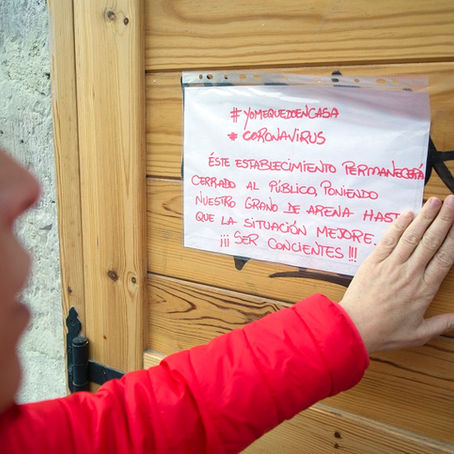 #YOMEQUEDOENCASA
#CORONAVIRUS
ÉSTE ESTABLECIMIENTO PERMANECERÁ
CERRADO AL PÚBLICO, PONIENDO
NUESTRO GRANO DE ARENA HASTA
QUE LA SITUACIÓN MEJORE.
¡¡¡ SER CONCIENTES !!!